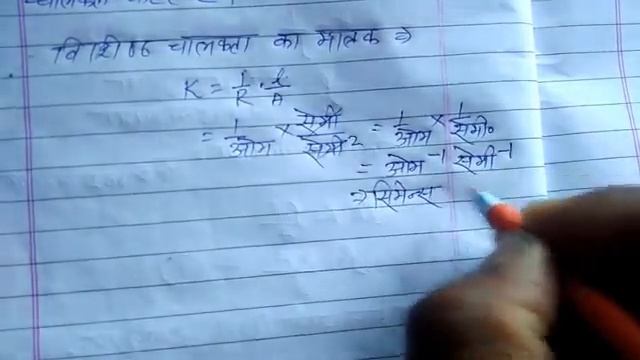 विशिष्ट चालकता का मात्रक ⇒
K = 1/R · l/A
= 1/ओम × सेमी/सेमी² = 1/ओम × 1/सेमी०
= ओम⁻¹ सेमी⁻¹
⇒ सिमेन्स